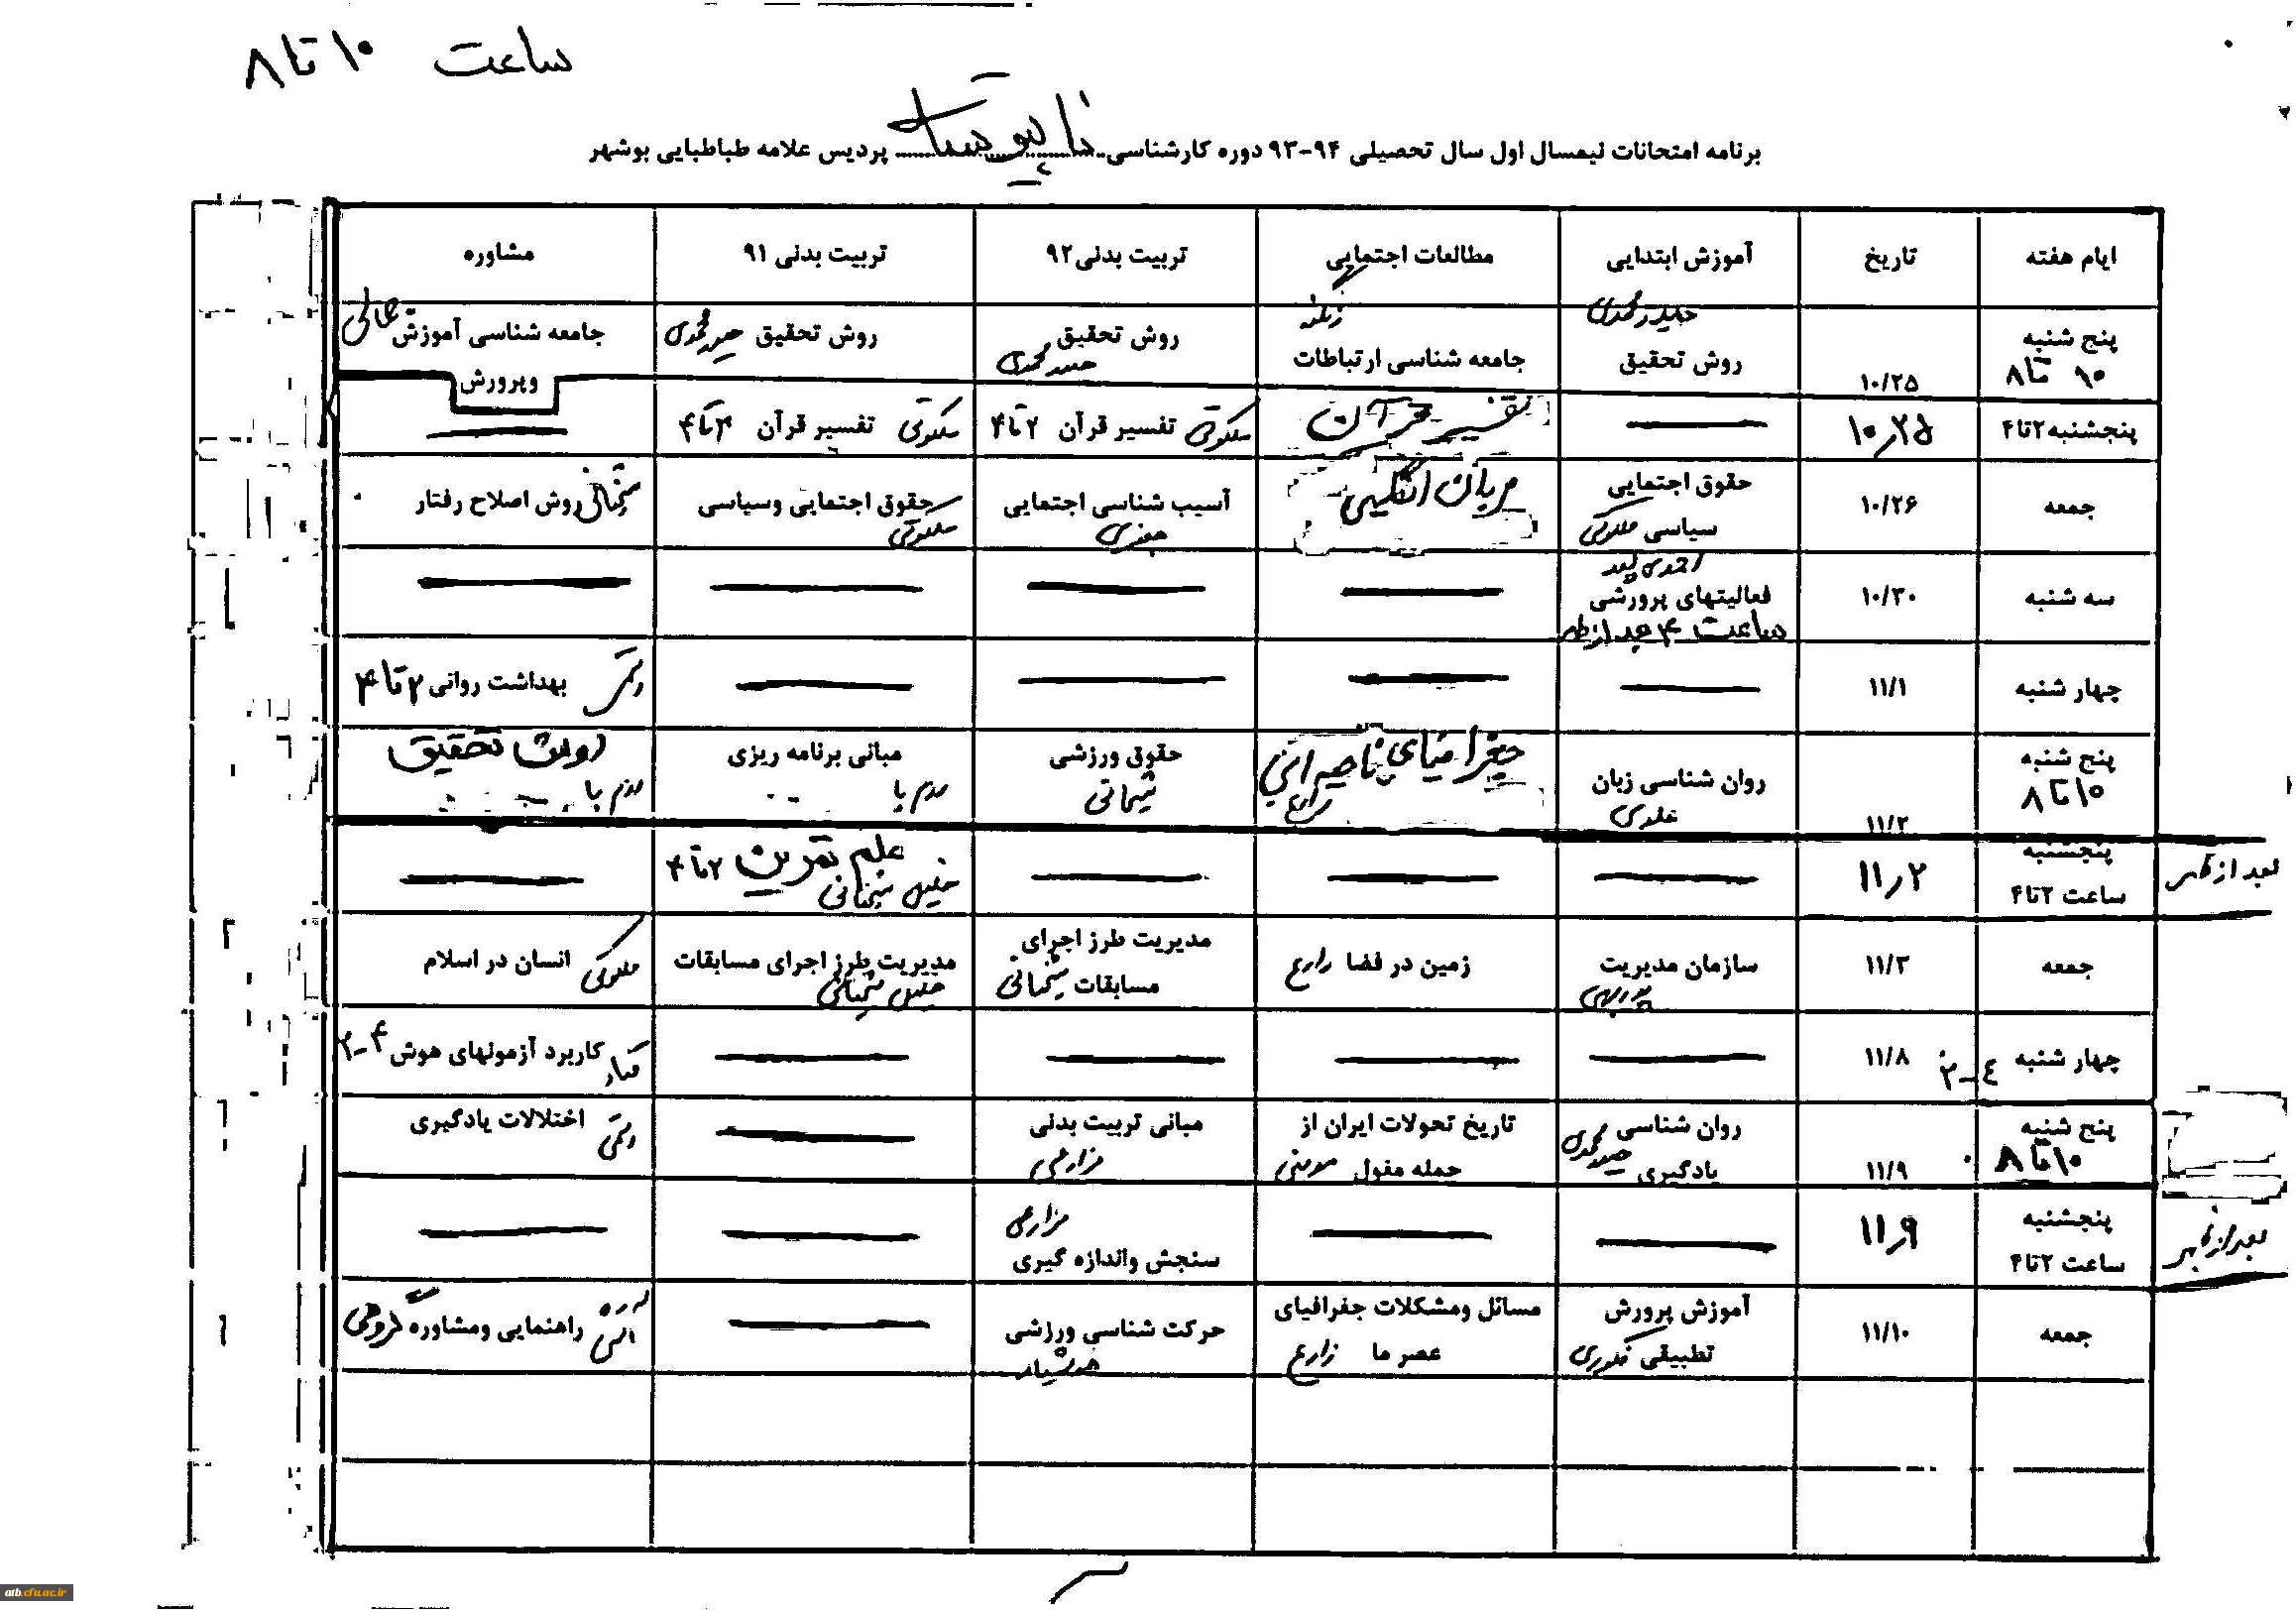 ساعت ۸ تا ۱۰
برنامه امتحانات نیمسال اول سال تحصیلی ۹۴-۹۳ دوره کارشناسی ناپیوسته پردیس علامه طباطبایی بوشهر
ایام هفته تاریخ آموزش ابتدایی مطالعات اجتمایی تربیت بدنی ۹۲ تربیت بدنی ۹۱ مشاوره
پنج شنبه
۸ تا ۱۰
۱۰/۲۵
حیدرمحمدی
روش تحقیق
زنگنه
جامعه شناسی ارتباطات
روش تحقیق
حیدرمحمدی
روش تحقیق حیدرمحمدی
جامعه شناسی آموزش
وپرورش
پنجشنبه ۲تا۴
۱۰/۲۵
تفسیر قرآن
تفسیر قرآن ۲تا۴
تفسیر قرآن ۲تا۴
جمعه
۱۰/۲۶
حقوق اجتمایی
سیاسی
آسیب شناسی اجتمایی
جعفری
حقوق اجتمایی وسیاسی
روش اصلاح رفتار
سه شنبه
۱۰/۳۰
فعالیتهای پرورشی
ساعت ۴ بعد از ظهر
چهار شنبه
۱۱/۱
بهداشت روانی ۲تا۴
پنج شنبه
۸ تا ۱۰
۱۱/۲
روان شناسی زبان
جغرافیای ناحیه ای
زارع
حقوق ورزشی
مبانی برنامه ریزی
روش تحقیق
بعد از ظهر
پنجشنبه
ساعت ۲تا۴
۱۱/۲
علم تمرین ۲تا۴
جمعه
۱۱/۳
سازمان مدیریت
زمین در فضا زارع
مدیریت طرز اجرای
مسابقات
مدیریت طرز اجرای مسابقات
انسان در اسلام
چهار شنبه
۲-٤
۱۱/۸
کاربرد آزمونهای هوش ۲-۴
پنج شنبه
۸ تا ۱۰
۱۱/۹
روان شناسی
یادگیری حیدرمحمدی
تاریخ تحولات ایران از
حمله مغول مومنی
مبانی تربیت بدنی
مزارعی
اختلالات یادگیری
بعد از ظهر
پنجشنبه
ساعت ۲تا۴
۱۱/۹
مزارعی
سنجش واندازه گیری
جمعه
۱۱/۱۰
آموزش پرورش
تطبیقی
مسائل ومشکلات جغرافیای
عصر ما زارع
حرکت شناسی ورزشی
هوشیار
راهنمایی ومشاوره گروهی
atb.cfu.ac.ir